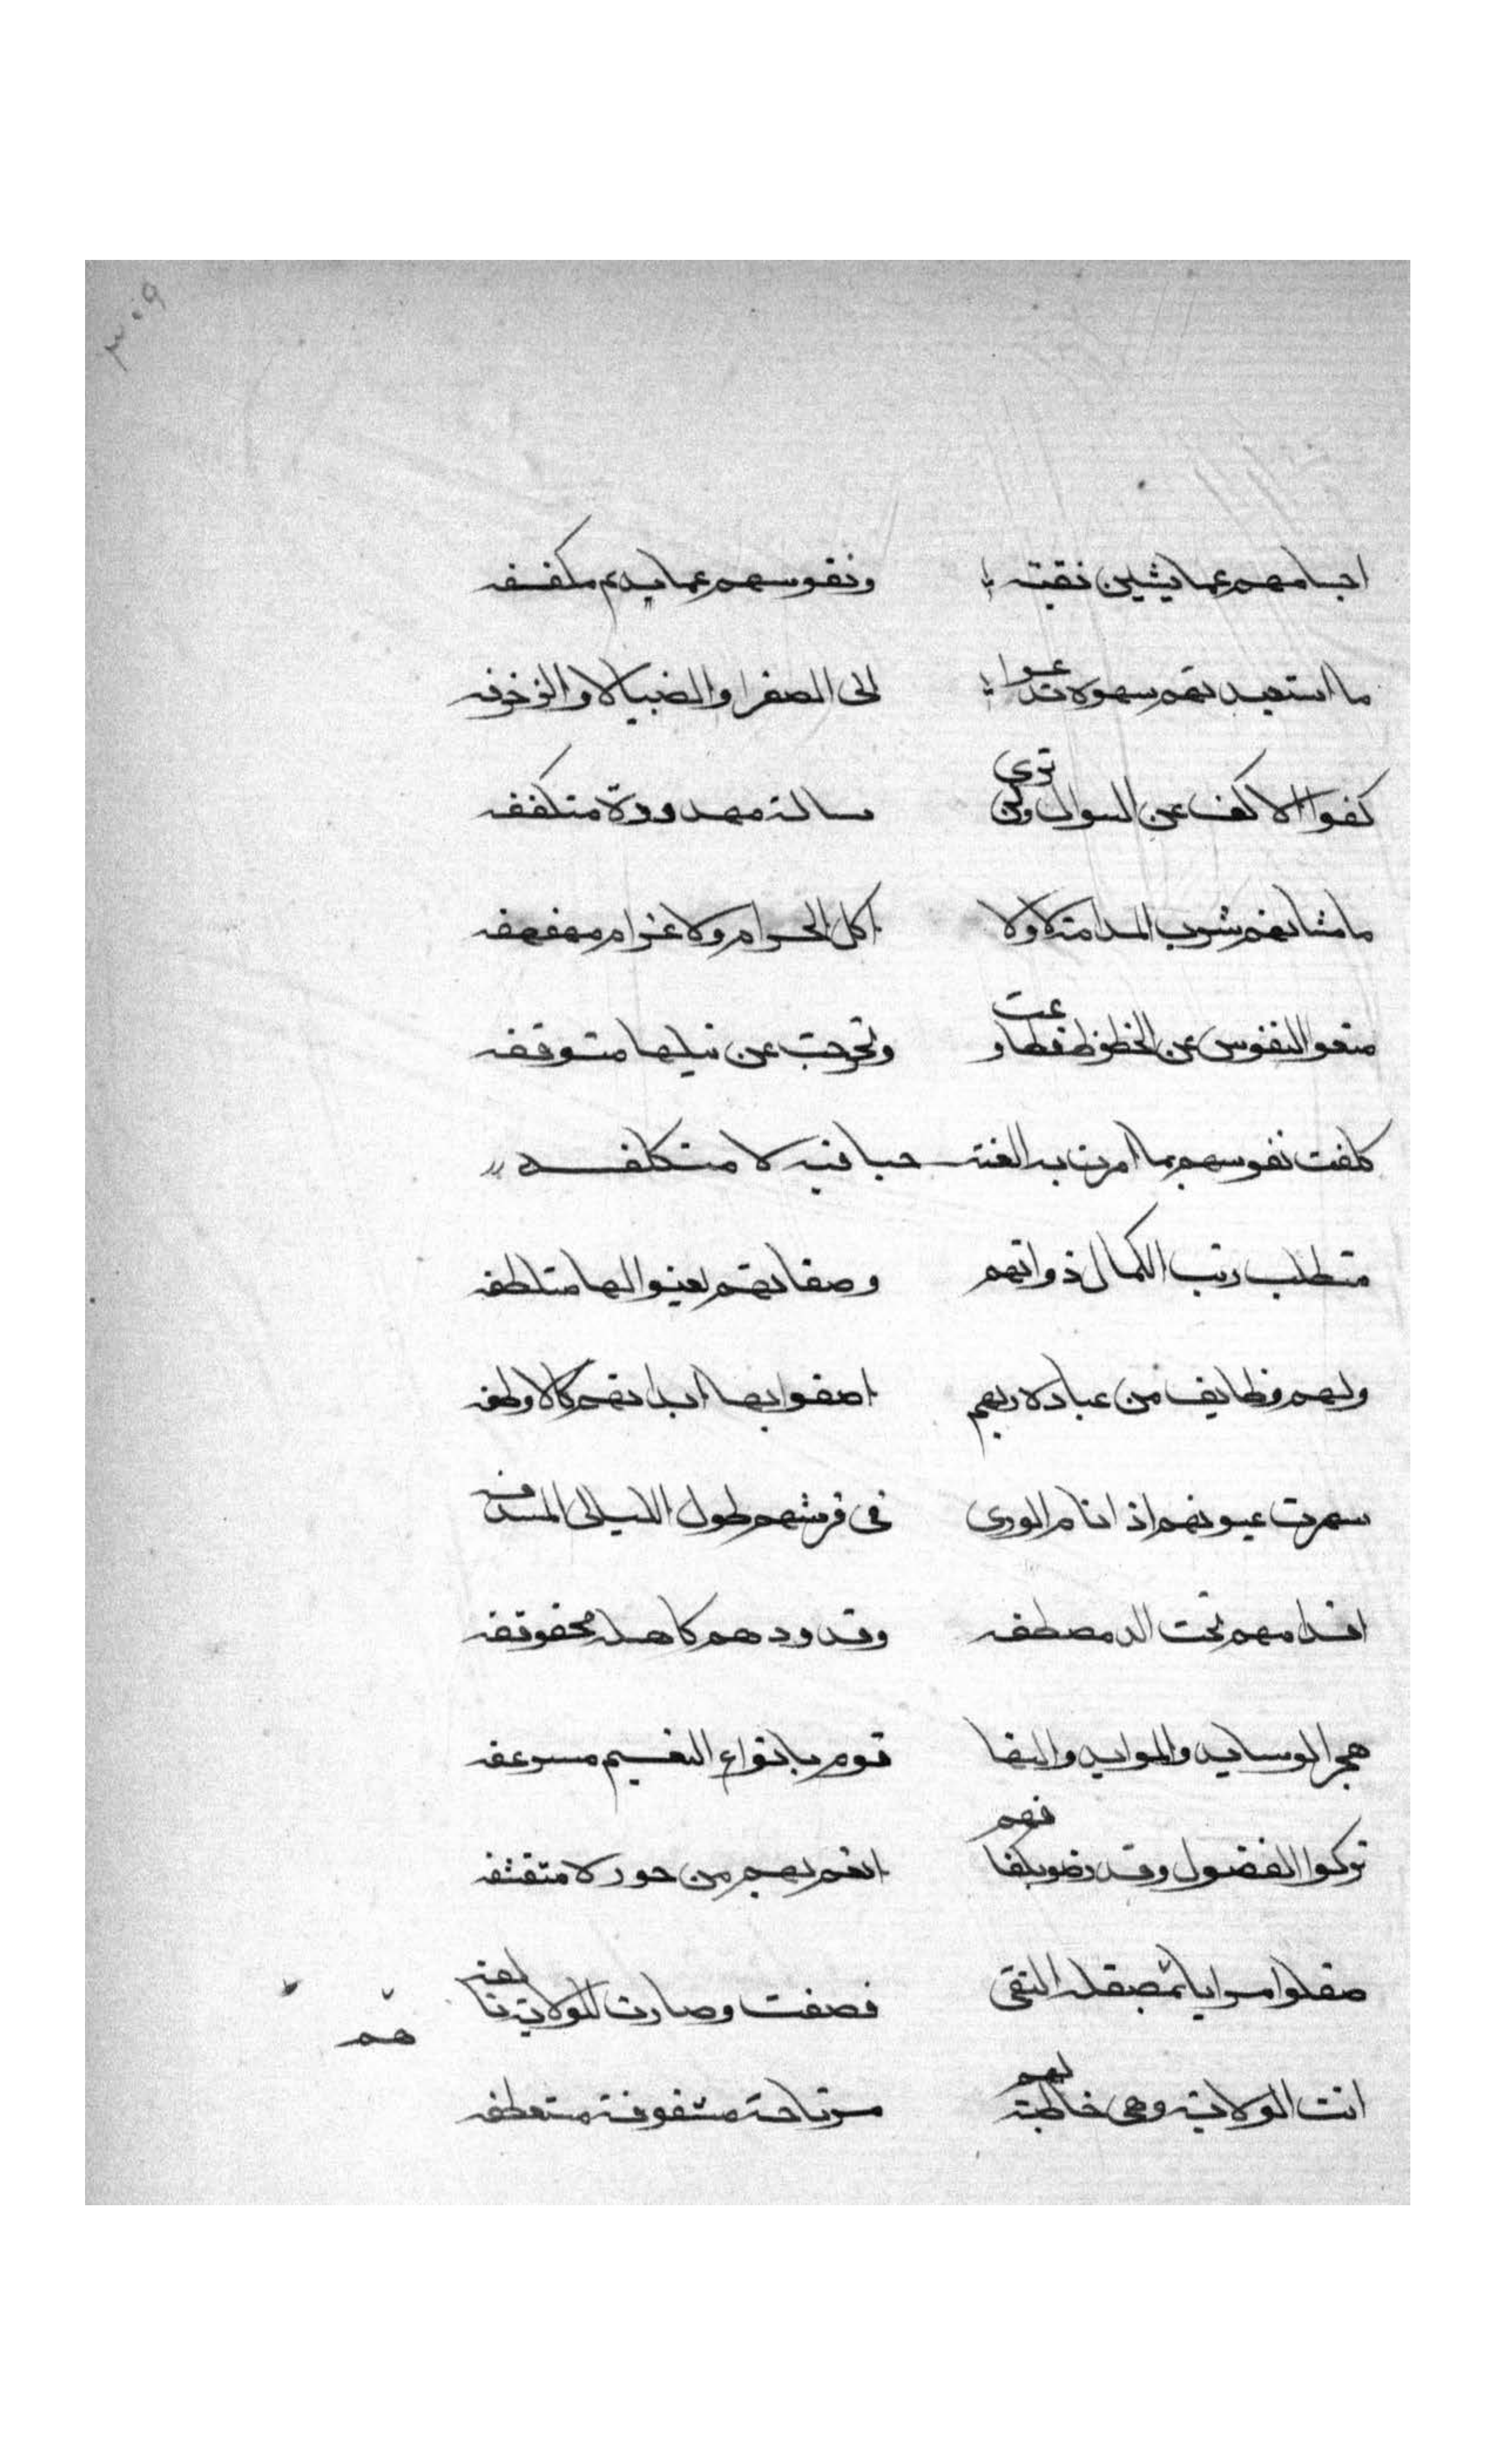 ٣٠٩
اجسامهم عما يشين نقية ونفوسهم عما يذم مكففه
ما استعبدتهم سهولا تدعوا الى الصفرا والضيالا والزخرفه
كفوا الاكف عن السوال ولن ترى سالة مهدودة متكففه
ما مشانهم شرب المدامة لا ولا اكل الحرام ولا غرام مهفهفه
منعوا النفوس عن الحظوظ فطاوعت وتحرجت عن نيلها متوقفه
كلفت نفوسهم بما امرت به الفته حبا فيه لا متكلفه
متطلب رتب الكمال ذواتهم وصفاتهم لعينوالها متلطفه
ولهم وظايف من عبادة ربهم اصفوا بها ابدانهم كالاوظفه
سهرت عيونهم اذا نام الورى فى فرشهم طول الليالى المسدفه
اقدامهم تحت الدمصطفه وقدودهم كاهلة محقوقفه
هجر الوسايد والموايد والنقا قوم بانواع النعيم مسرعفه
تركوا الفضول وقد رضوا بكفافهم انعم بهم من حورلا متقشفه
صقلوا مرايا بمصقلة التقى فصفت وصارت للولاية تالفه
هم
اتت الولاية وهى خاطبة لهم مرتاحة مشغوفة متعطفه